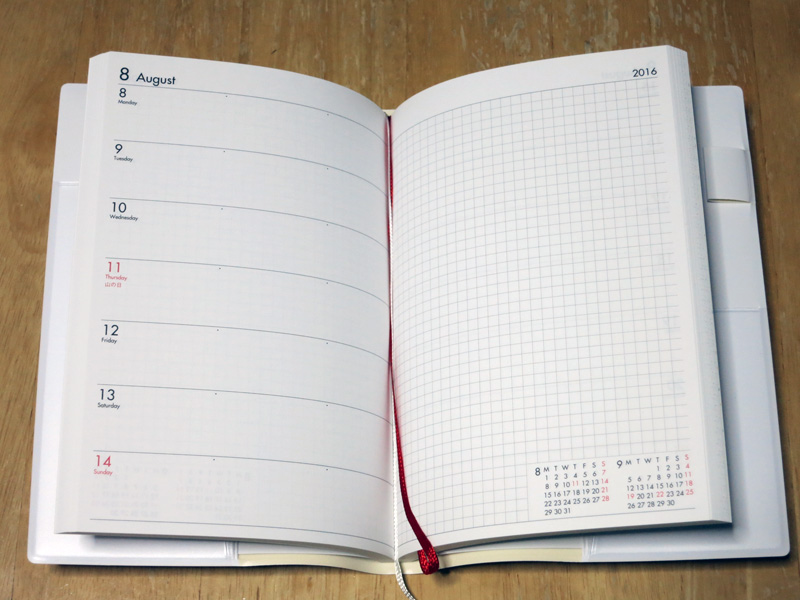 8 August
8
Monday
9
Tuesday
10
Wednesday
11
Thursday
山の日
12
Friday
13
Saturday
14
Sunday
2016
8 M T W T F S S
1 2 3 4 5 6 7
8 9 10 11 12 13 14
15 16 17 18 19 20 21
22 23 24 25 26 27 28
29 30 31
9 M T W T F S S
1 2 3 4
5 6 7 8 9 10 11
12 13 14 15 16 17 18
19 20 21 22 23 24 25
26 27 28 29 30